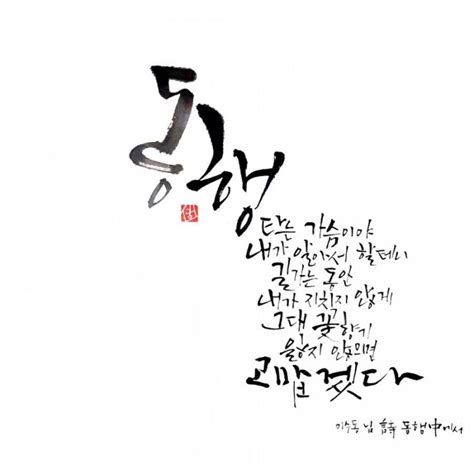 동행
타는 가슴이야
내가 알아서 할테니
길가는 동안
내가 지치지 않게
그대 꽃향기
을 잃지 않으면
고맙겟다
이수동님 詩 동행中에서